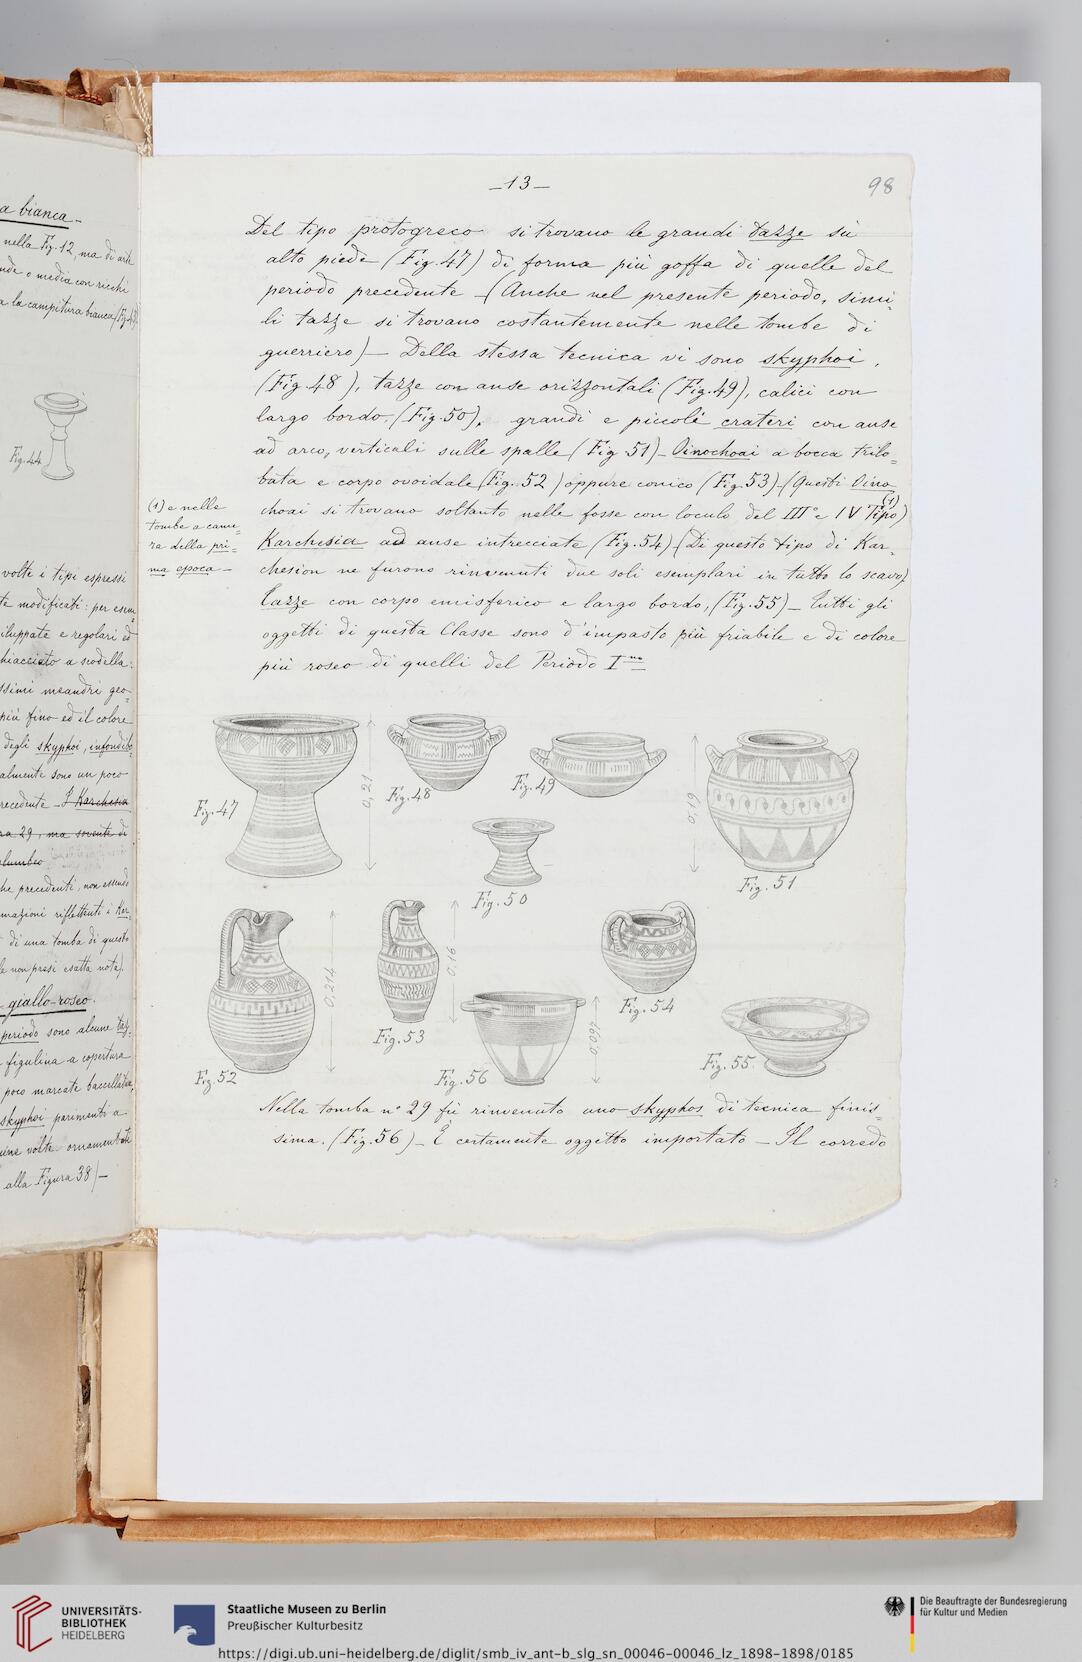 a bianca -
nella Fig. 12, ma di
nde o media con ricchi
a la campitura bianca (Fig. 43)
Fig. 44
volte i tipi espressi
te modificati: per esem=
iluppate e regolari ed
hiacciato a scodella:
ssimi meandri geo=
più fino ed il colore
degli skyphoi, infondibo
almente sono un poco
recedente - I Karchesia
ra 29, ma sovente di
he precedenti, non essendo
mazioni riflettenti i Kar-
di una tomba di questo
le non presi esatta nota).
giallo-roseo.
periodo sono alcune taz-
figulina a copertura
poco marcate baccellature,
skyphoi parimenti a
une volte ornamentati
alla Figura 38) -
- 13 -
98
Del tipo protogreco si trovano le grandi tazze sù
alto piede (Fig. 47) di forma più goffa di quelle del
periodo precedente - (Anche nel presente periodo, simi=
li tazze si trovano costantemente nelle tombe di
guerriero) - Della stessa tecnica vi sono skyphoi,
(Fig. 48), tazze con anse orizzontali (Fig. 49), calici con
largo bordo, (Fig. 50), grandi e piccoli crateri con anse
ad arco, verticali sulle spalle (Fig 51) - Oinochoai a bocca trilo=
bata e corpo ovoidale (Fig. 52) oppure conico (Fig. 53) - (Questi Oino
choai si trovano soltanto nelle fosse con loculo del III° e IV Tipo) (1)
(1) e nelle
tombe a came=
ra della pri=
ma epoca -
Karchesia ad anse intrecciate (Fig. 54) (Di questo tipo di Kar-
chesion ne furono rinvenuti due soli esemplari in tutto lo scavo).
Tazze con corpo emisferico e largo bordo, (Fig. 55) - Tutti gli
oggetti di questa Classe sono d'impasto più friabile e di colore
più roseo di quelli del Periodo Imo
Fig. 47
0,21
Fig. 48
Fig. 49
Fig. 50
0,19
Fig. 51
Fig. 52
0,214
Fig. 53
0,16
Fig. 54
Fig. 55
Fig. 56
0,097
Nella tomba n° 29 fù rinvenuto uno skyphos di tecnica finis=
sima. (Fig. 56) - È certamente oggetto importato - Il corredo
UNIVERSITÄTS-
BIBLIOTHEK
HEIDELBERG
Staatliche Museen zu Berlin
Preußischer Kulturbesitz
Die Beauftragte der Bundesregierung
für Kultur und Medien
https://digi.ub.uni-heidelberg.de/diglit/smb_iv_ant-b_slg_sn_00046-00046_lz_1898-1898/0185